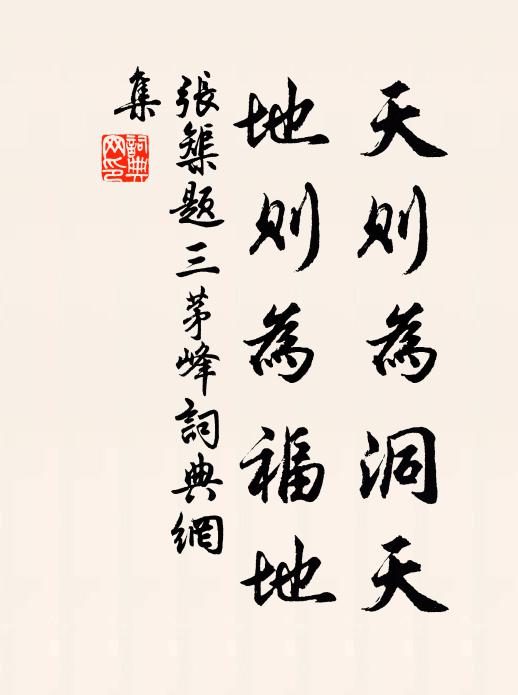 天則為洞天
地則為福地
張榘題三茅峰詞典網
集
詞典網印